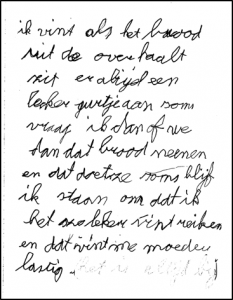 ik vint als het brood
uit de over haalt
zit er altijd een
leker gurtje aan soms
vraag ik dan of we
dan dat brood neemen
en dat doetze soms blijf
ik staan om dat ik
het zo leker vint reiken
en dat vint me moeder
lastig.